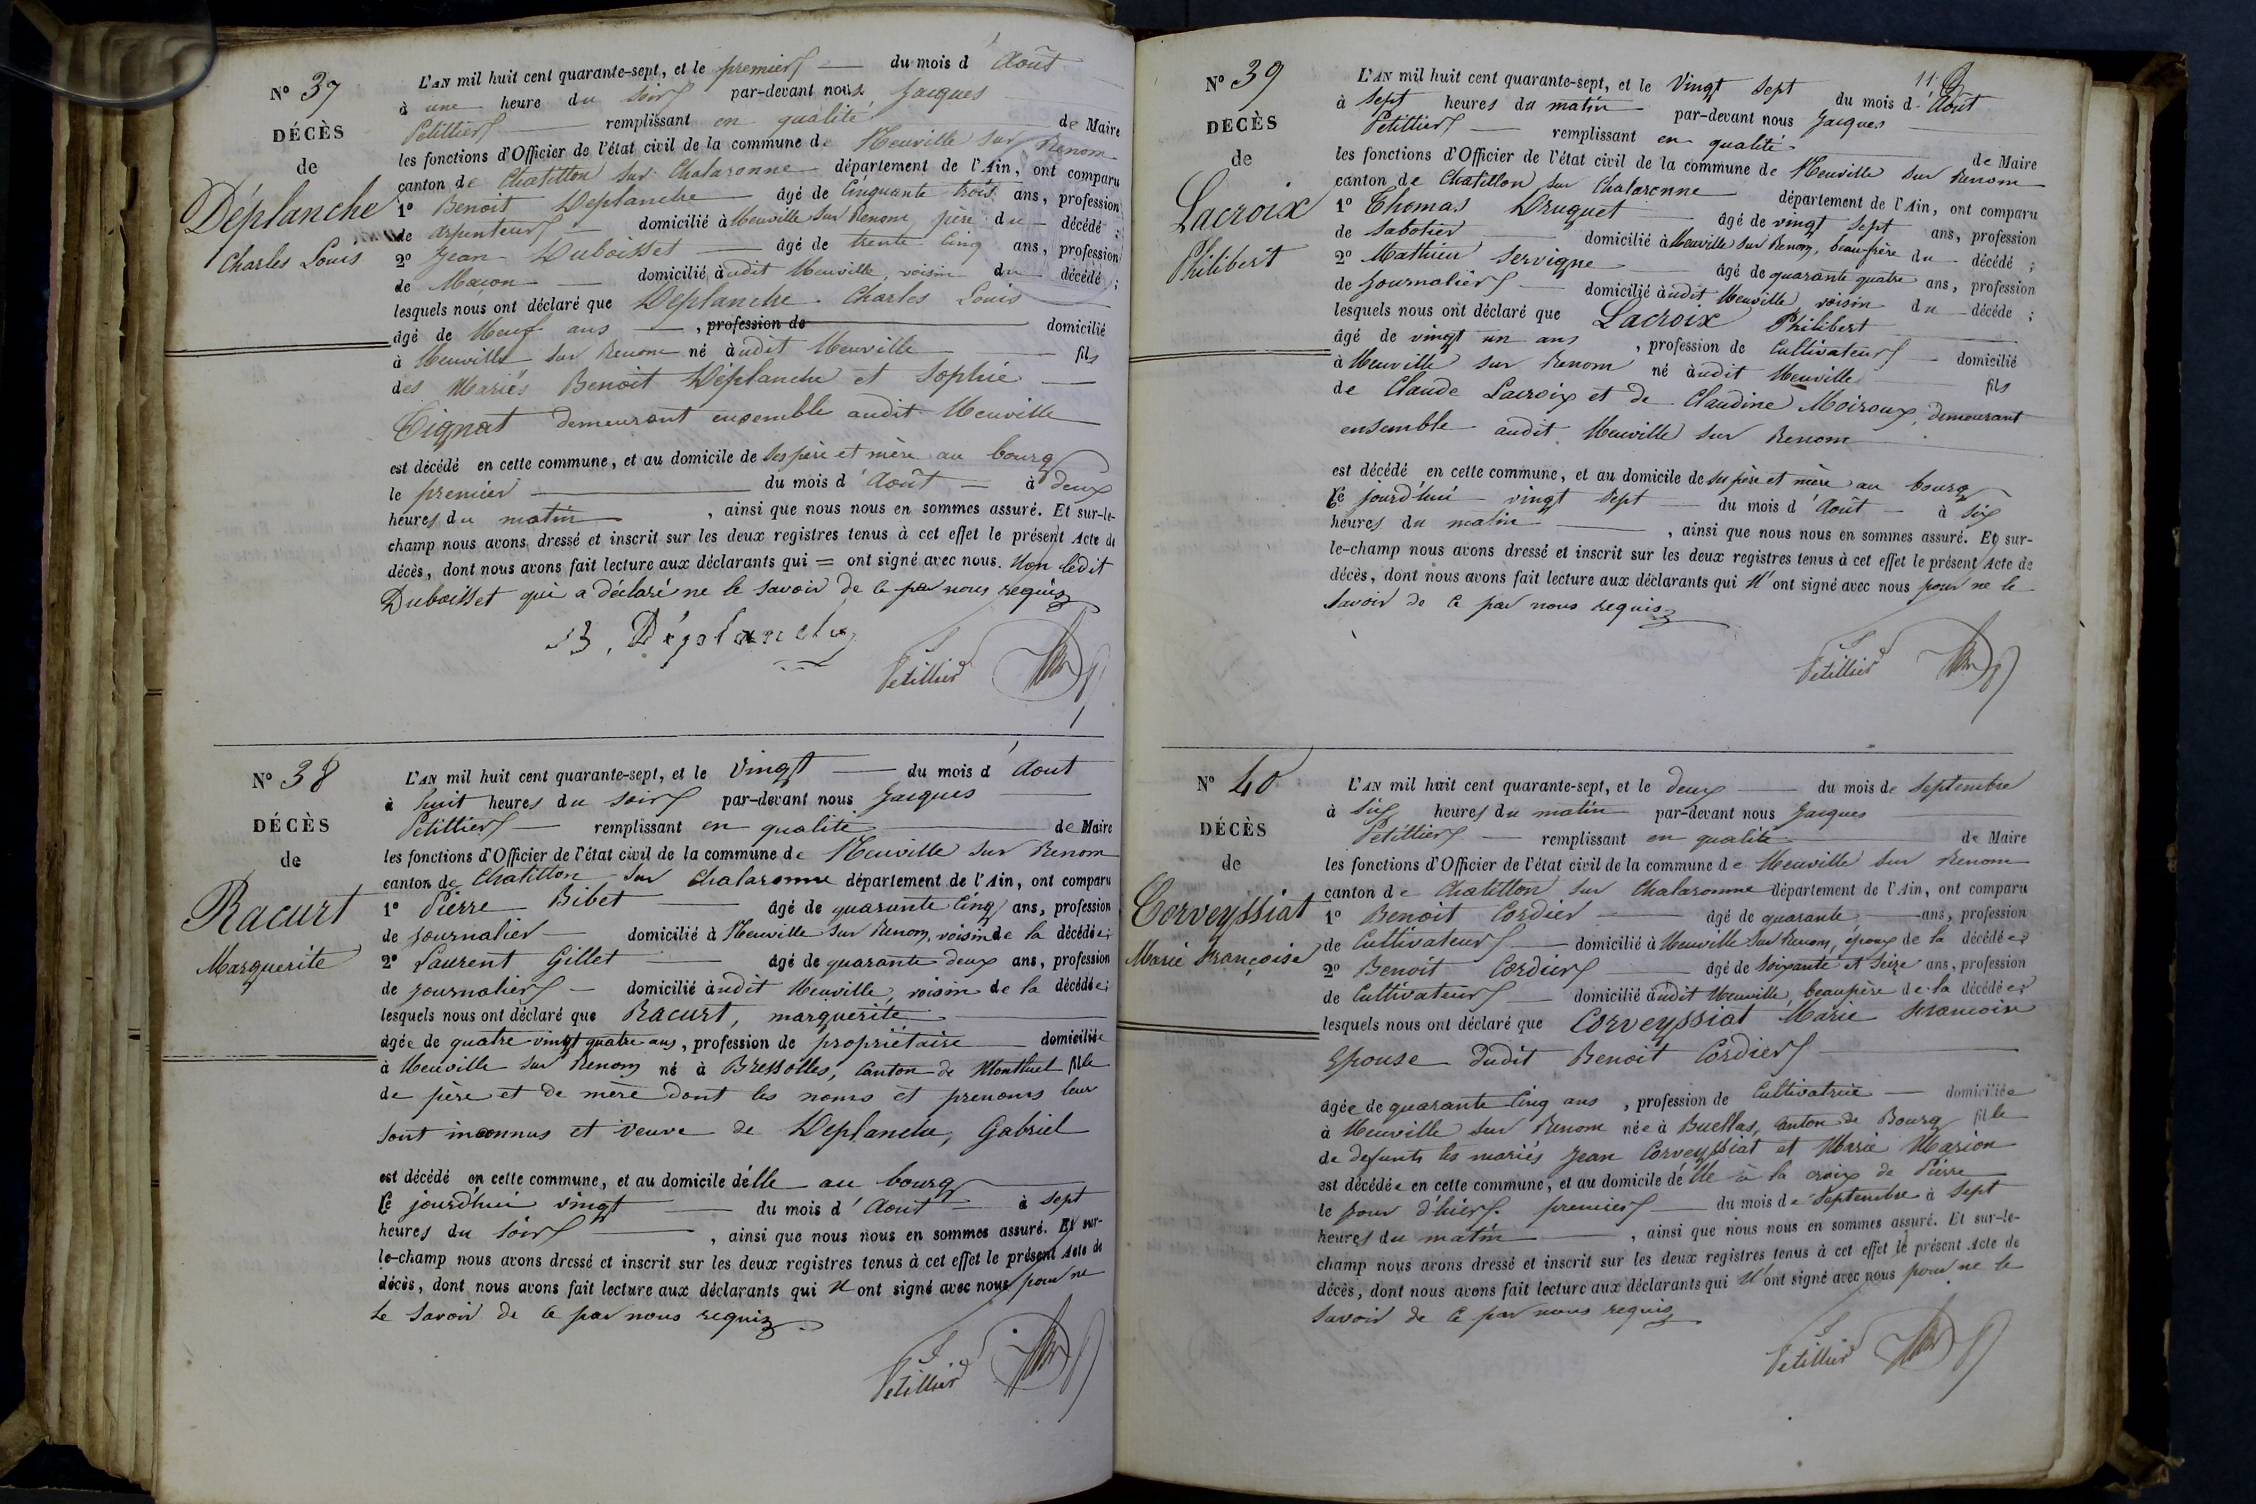 N° 37
DÉCÈS
de
Déplanche
Charles Louis
L'AN mil huit cent quarante-sept, et le premier du mois d'Août
à une heure du soir par-devant nous Jacques
Petillier remplissant en qualité de Maire
les fonctions d'Officier de l'état civil de la commune de Neuville sur Renom
canton de Chatillon sur Chalaronne département de l'Ain, ont comparu
1° Benoit Deplanche âgé de Cinquante trois ans, profession
de arpenteur domicilié à Neuville sur Renom, père du décédé ;
2° Jean Duboisset âgé de trente cinq ans, profession
de Maçon domicilié audit Neuville, voisin du décédé ;
lesquels nous ont déclaré que Déplanche Charles Louis
âgé de Neuf ans , profession de domicilié
à Neuville sur Renom né audit Neuville fils
des Mariés Benoit Déplanche et Sophie
Tignat demeurant ensemble audit Neuville
est décédé en cette commune, et au domicile de ses père et mère au bourg
le premier du mois d'Août à deux
heures du matin , ainsi que nous nous en sommes assuré. Et sur-le-
champ nous avons dressé et inscrit sur les deux registres tenus à cet effet le présent Acte de
décès, dont nous avons fait lecture aux déclarants qui = ont signé avec nous. Non ledit
Duboisset qui a déclaré ne le savoir de ce par nous requis
B. Déplanche
Petillier
N° 38
DÉCÈS
de
Racurt
Marguerite
L'AN mil huit cent quarante-sept, et le Vingt du mois d'Aout
à huit heures du soir par-devant nous Jacques
Petillier remplissant en qualité de Maire
les fonctions d'Officier de l'état civil de la commune de Neuville sur Renom
canton de Chatillon sur Chalaronne département de l'Ain, ont comparu
1° Pierre Bibet âgé de quarante Cinq ans, profession
de journalier domicilié à Neuville sur Renom, voisin de la décédée ;
2° Laurent Gillet âgé de quarante deux ans, profession
de journalier domicilié audit Neuville, voisin de la décédée ;
lesquels nous ont déclaré que Racurt, marguerite
âgée de quatre vingt quatre ans, profession de propriétaire domiciliée
à Neuville sur Renom né à Bressolles, Canton de Montluel fille
de père et de mère dont les noms et prenoms leur
sont inconnus et veuve de Deplanche, Gabriel
est décédé en cette commune, et au domicile d'elle au bourg
Ce jourd'hui vingt du mois d'Aout à sept
heures du soir , ainsi que nous nous en sommes assuré. Et sur-
le-champ nous avons dressé et inscrit sur les deux registres tenus à cet effet le présent Acte de
décès, dont nous avons fait lecture aux déclarants qui N'ont signé avec nous pour ne
le savoir de ce par nous requis
Petillier
N° 39
DÉCÈS
de
Lacroix
Philibert
L'AN mil huit cent quarante-sept, et le Vingt sept du mois d'Août
à sept heures du matin par-devant nous Jacques
Petillier remplissant en qualité de Maire
les fonctions d'Officier de l'état civil de la commune de Neuville sur Renom
canton de Chatillon sur Chalaronne département de l'Ain, ont comparu
1° Thomas Druguet âgé de vingt sept ans, profession
de Sabotier domicilié à Neuville sur Renom, beau-frère du décédé ;
2° Mathieu Servigne âgé de quarante quatre ans, profession
de journalier domicilié audit Neuville voisin du décédé ;
lesquels nous ont déclaré que Lacroix Philibert
âgé de vingt un ans , profession de Cultivateur domicilié
à Neuville sur Renom né audit Neuville fils
de Claude Lacroix et de Claudine Moiroux, demeurant
ensemble audit Neuville sur Renom
est décédé en cette commune, et au domicile de ses père et mère au bourg
Ce jourd'hui vingt sept du mois d'Août à six
heures du matin , ainsi que nous nous en sommes assuré. Et sur-
le-champ nous avons dressé et inscrit sur les deux registres tenus à cet effet le présent Acte de
décès, dont nous avons fait lecture aux déclarants qui N'ont signé avec nous pour ne le
savoir de ce par nous requis
Petillier
N° 40
DÉCÈS
de
Corveyssiat
Marie Françoise
L'AN mil huit cent quarante-sept, et le deux du mois de Septembre
à six heures du matin par-devant nous Jacques
Petillier remplissant en qualité de Maire
les fonctions d'Officier de l'état civil de la commune de Neuville sur Renom
canton de Chatillon sur Chalaronne département de l'Ain, ont comparu
1° Benoit Cordier âgé de quarante ans, profession
de Cultivateur domicilié à Neuville sur Renom, époux de la décédée
2° Benoit Cordier âgé de soixante et seize ans, profession
de Cultivateur domicilié audit Neuville, beaupère de la décédée
lesquels nous ont déclaré que Corveyssiat Marie
Epouse dudit Benoit Cordier
âgée de quarante Cinq ans , profession de Cultivatrice domiciliée
à Neuville sur Renom née à Buellas, Canton de Bourg fille
de defunts les mariés Jean Corveyssiat et Marie Marion
est décédée en cette commune, et au domicile d'elle à la croix de Pierre
le jour d'hier premier du mois de Septembre à sept
heures du matin , ainsi que nous nous en sommes assuré. Et sur-le-
champ nous avons dressé et inscrit sur les deux registres tenus à cet effet le présent Acte de
décès, dont nous avons fait lecture aux déclarants qui N'ont signé avec nous pour ne le
savoir de ce par nous requis
Petillier